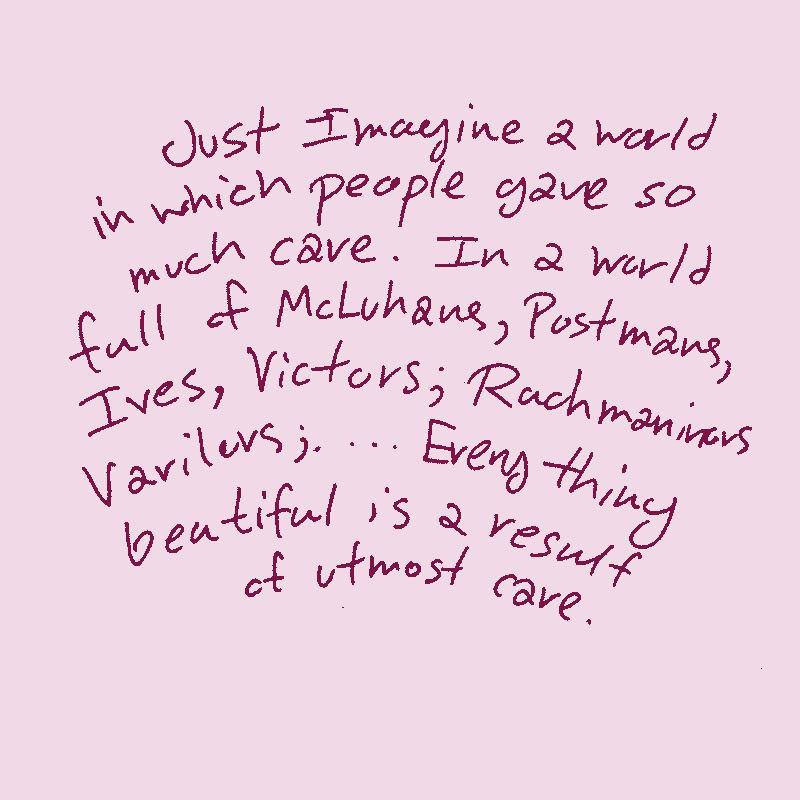 Just Imagine a world
in which people gave so
much care. In a world
full of McLuhans, Postmans,
Ives, Victors; Rachmaninovs
Varilovs;. ... Everything
beautiful is a result
of utmost care.